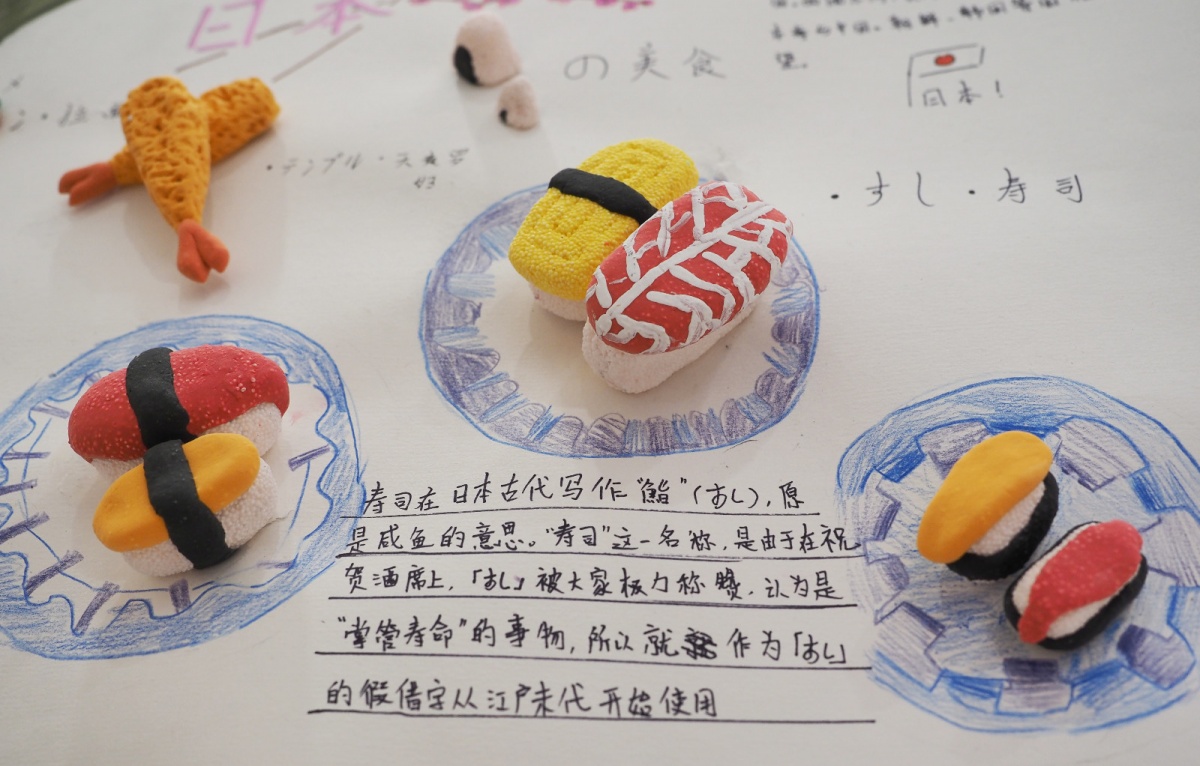 日本
の美食
日本！
・テンプル・天夫罗
・すし・寿司
寿司在日本古代写作“鮨”(すし),原
是咸鱼的意思。“寿司”这一名称,是由于在祝
贺酒席上,「すし」被大家极力称赞,认为是
“掌管寿命”的事物,所以就作为「すし」
的假借字从江户末代开始使用